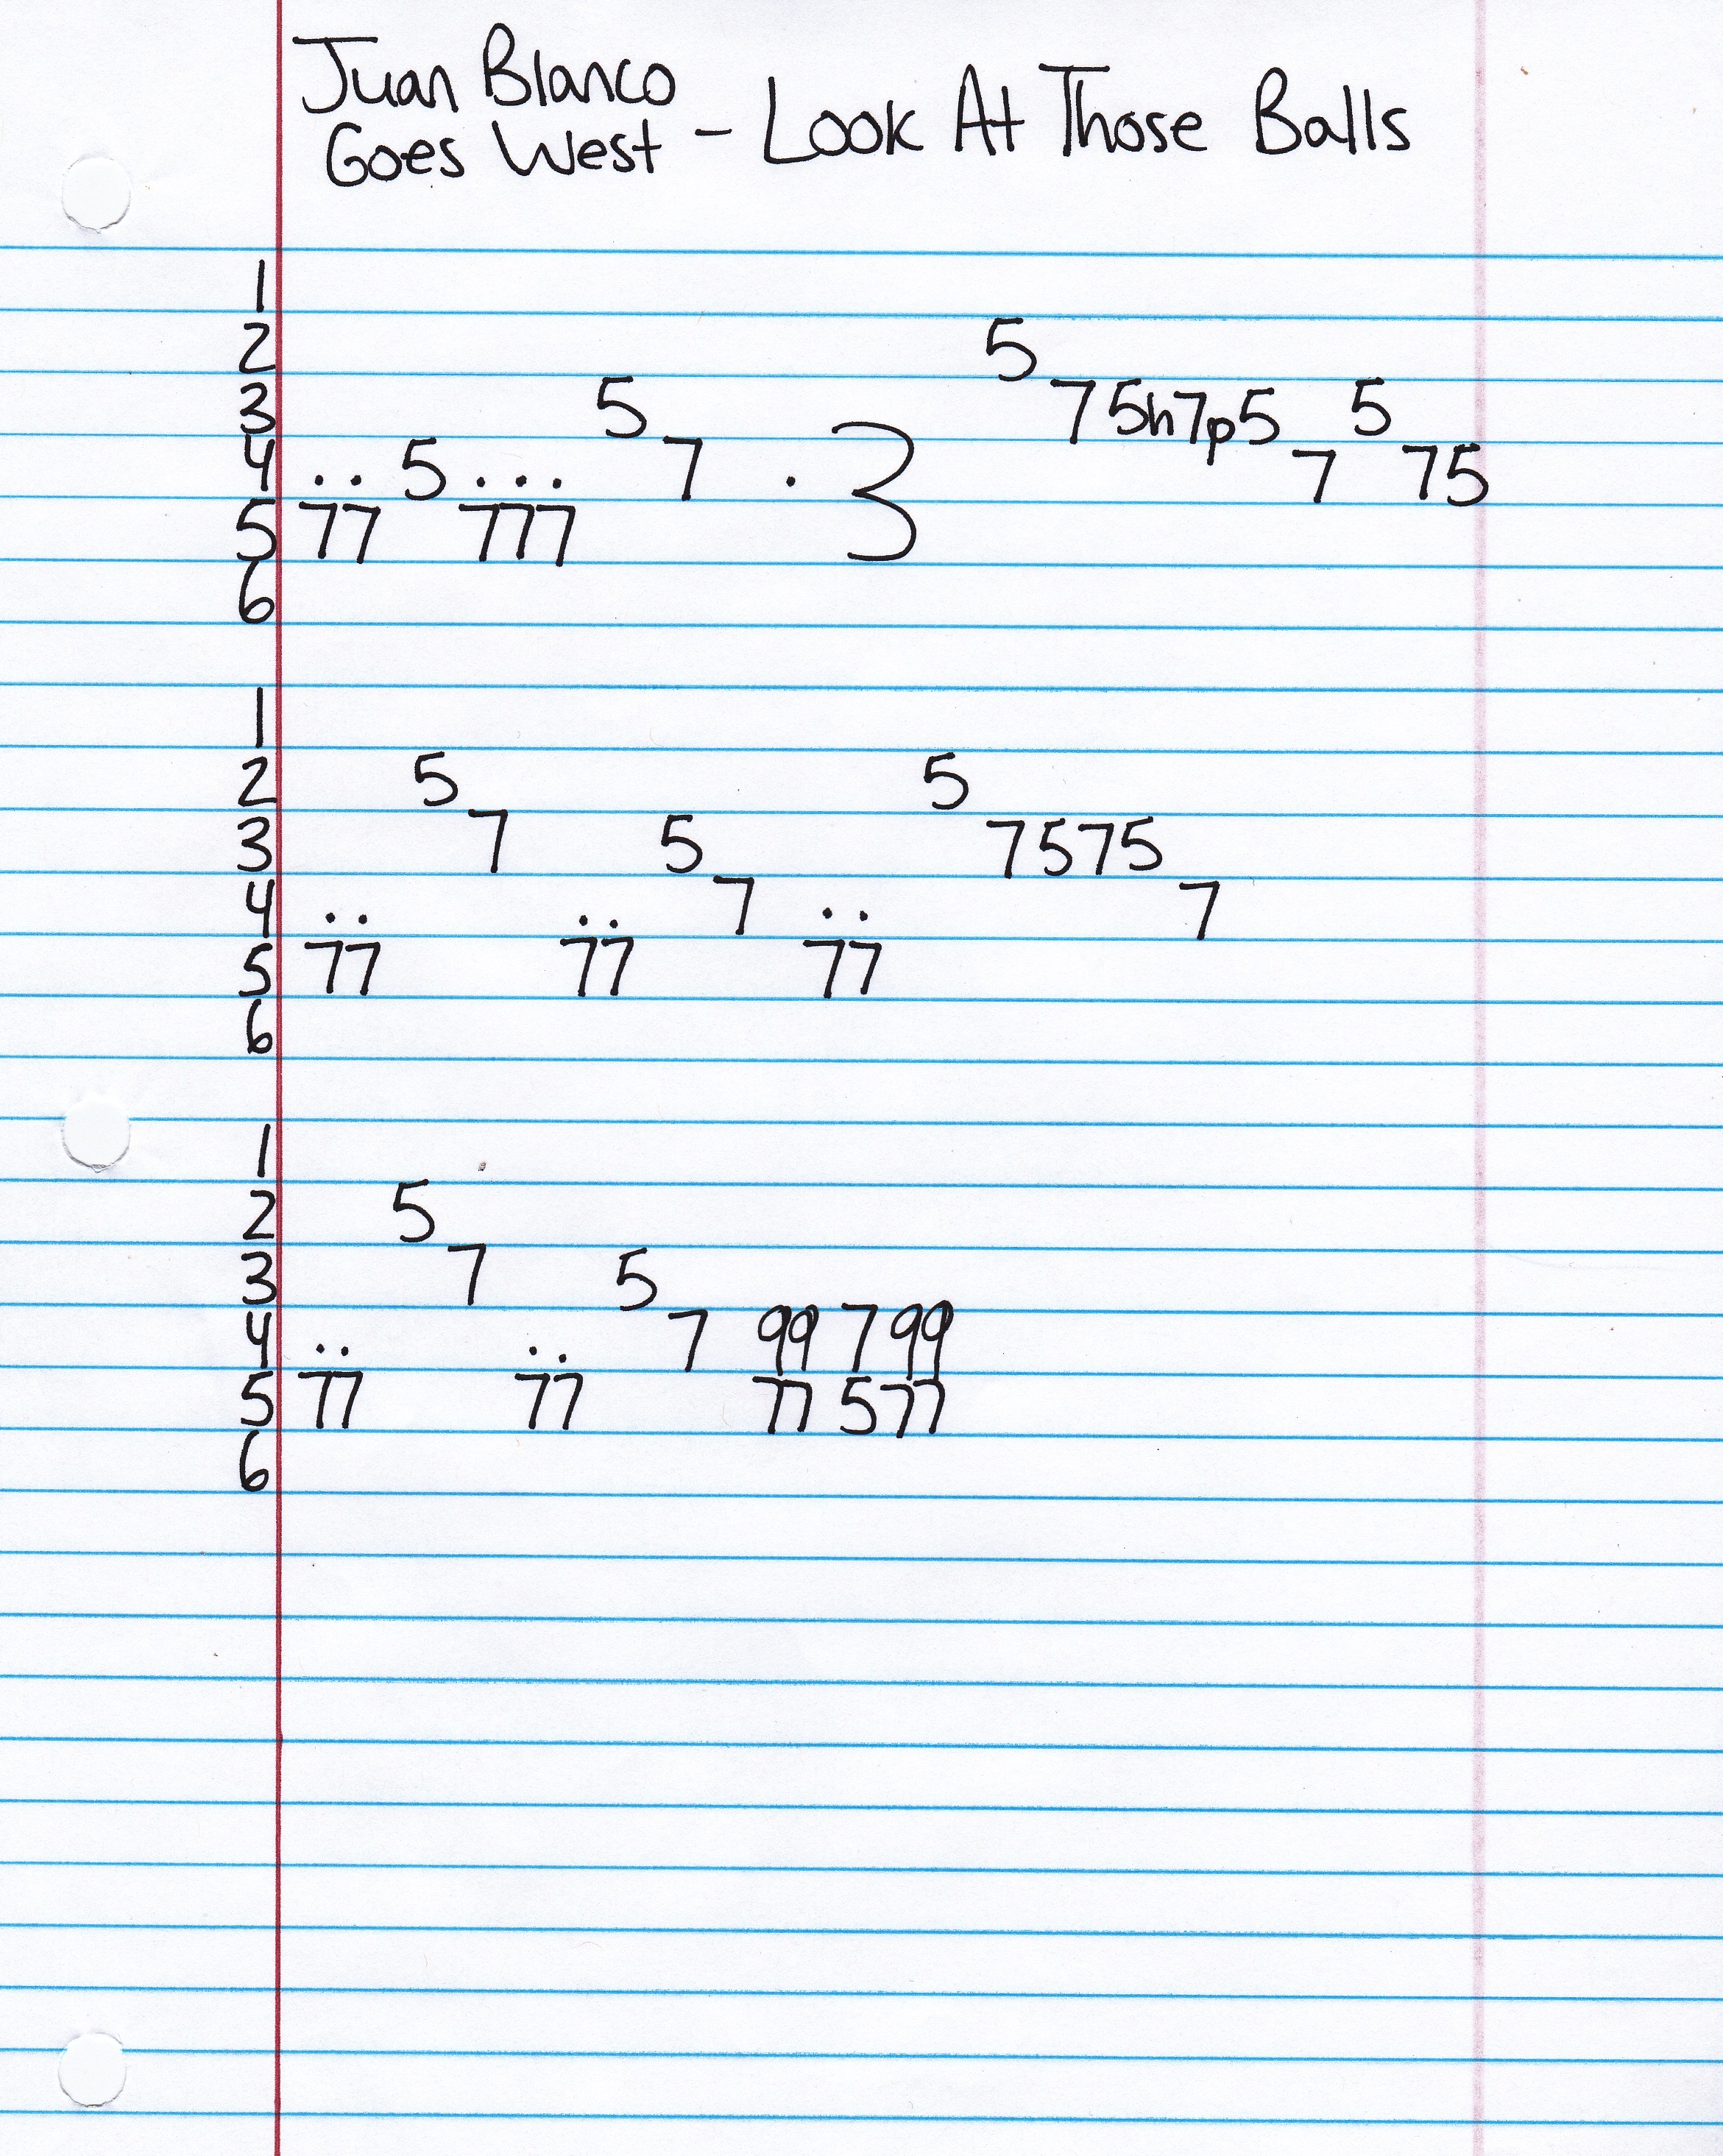 Juan Blanco
Goes West - Look At Those Balls
1
2 5
3 5 7 5h7p5 5
4 . . 5 . . . 7 . 3 7 75
5 77 777
6
1
2 5 5
3 7 5 7575
4 . . . . 7 . . 7
5 77 77 77
6
1
2 5
3 7 5
4 . . . . 7 99 799
5 77 77 77 577
6